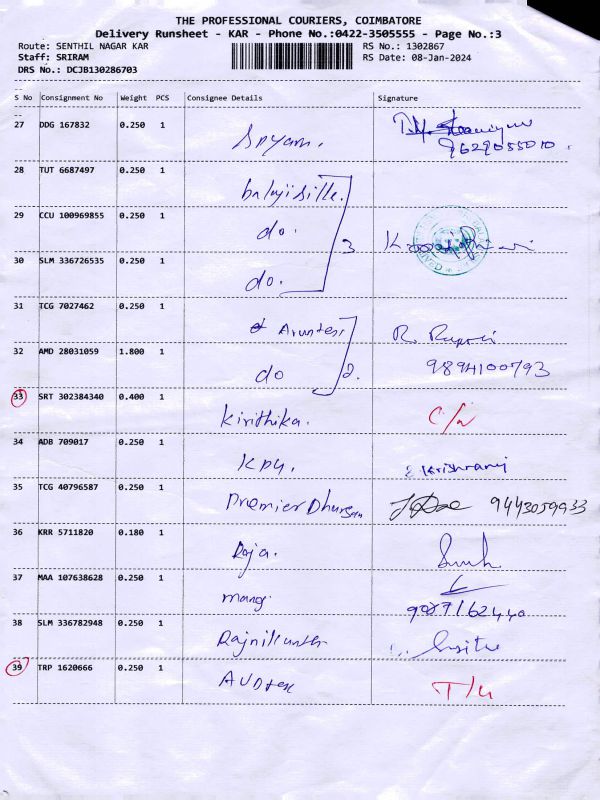 THE PROFESSIONAL COURIERS, COIMBATORE
Delivery Runsheet - KAR - Phone No.:0422-3505555 - Page No.:3
Route: SENTHIL NAGAR KAR
RS No.: 1302867
Staff: SRIRAM
RS Date: 08-Jan-2024
DRS No.: DCJB130286703
S No Consignment No Weight PCS Consignee Details Signature
27 DDG 167832 0.250 1
9629055010.
28 TUT 6687497 0.250 1
29 CCU 100969855 0.250 1 do. 3
30 SLM 336726535 0.250 1 do.
31 TCG 7027462 0.250 1
32 AMD 28031059 1.800 1 do 2. 9894100793
33 SRT 302384340 0.400 1 Kirithika.
34 ADB 709017 0.250 1 KPY. Krishnaraj
35 TCG 40796587 0.250 1 Premier 9443059933
36 KRR 5711820 0.180 1 Raja.
37 MAA 107638628 0.250 1
38 SLM 336782948 0.250 1
39 TRP 1620666 0.250 1